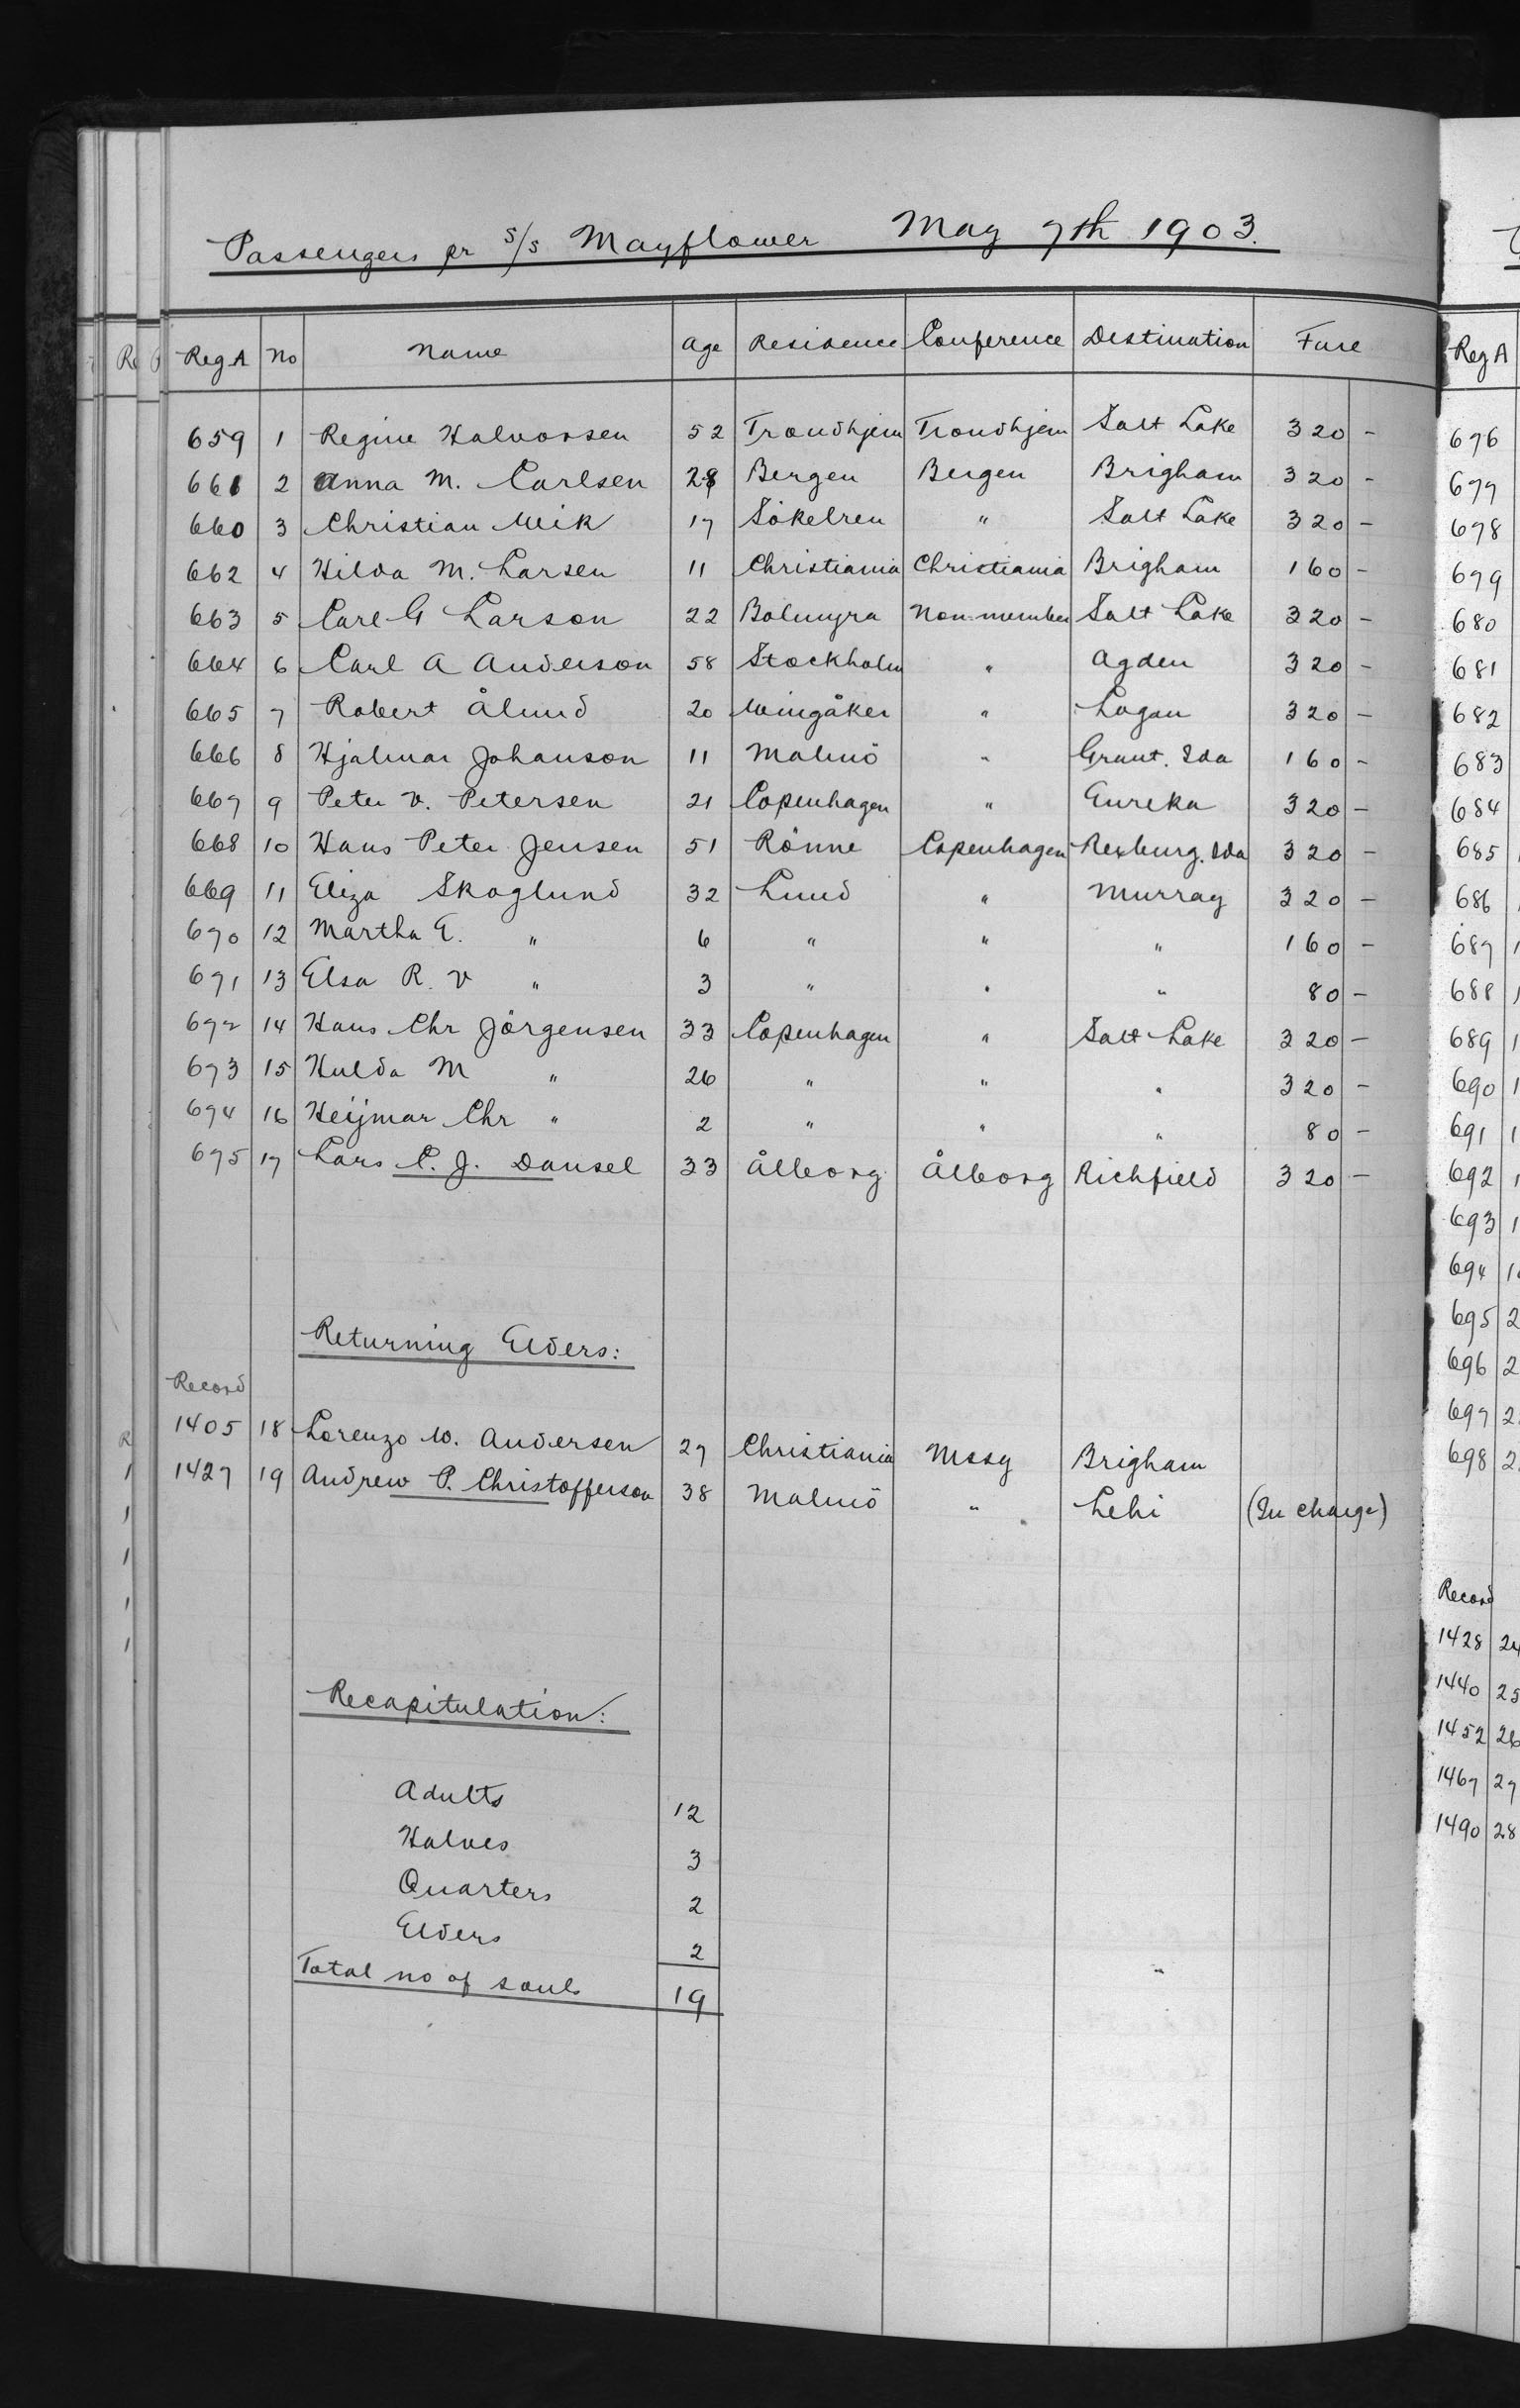 Passengers pr S/S Mayflower May 7th 1903.
Reg A No Name Age Residence Conference Destination Fare
659 1 Regine Halvorsen 52 Trondhjem Trondhjem Salt Lake 320 -
661 2 Anna M. Carlsen 28 Bergen Bergen Brigham 320 -
660 3 Christian Meik 17 Sökelren " Salt Lake 320 -
662 4 Hilda M. Larsen 11 Christiania Christiania Brigham 160 -
663 5 Carl G Larson 22 Bolmyra Non-member Salt Lake 320 -
664 6 Carl A Anderson 58 Stockholm " Ogden 320 -
665 7 Robert Ålund 20 Wingåker " Logan 320 -
666 8 Hjalmar Johanson 11 Malmö " Grant. Ida 160 -
667 9 Peter V. Petersen 21 Copenhagen " Eureka 320 -
668 10 Hans Peter Jensen 51 Rönne Copenhagen Rexburg. Ida 320 -
669 11 Eliza Skoglund 32 Lund " Murray 320 -
670 12 Martha E. " 6 " " " 160 -
671 13 Elsa R. V " 3 " " " 80 -
672 14 Hans Chr Jörgensen 33 Copenhagen " Salt Lake 320 -
673 15 Hulda M " 26 " " " 320 -
674 16 Heijmar Chr " 2 " " " 80 -
675 17 Lars C. J. Dansel 33 Ålborg Ålborg Richfield 320 -
Returning Elders:
Record
1405 18 Lorenzo W. Andersen 27 Christiania Mssy Brigham
1427 19 Andrew P. Christofferson 38 Malmö " Lehi (In charge)
Recapitulation:
Adults 12
Halves 3
Quarters 2
Elders 2
Total no of souls 19
Reg A
676
677
678
679
680
681
682
683
684
685
686
687
688
689
690
691
692
693
694
695
696
697
698
Record
1428 24
1440 25
1452 26
1467 27
1490 28